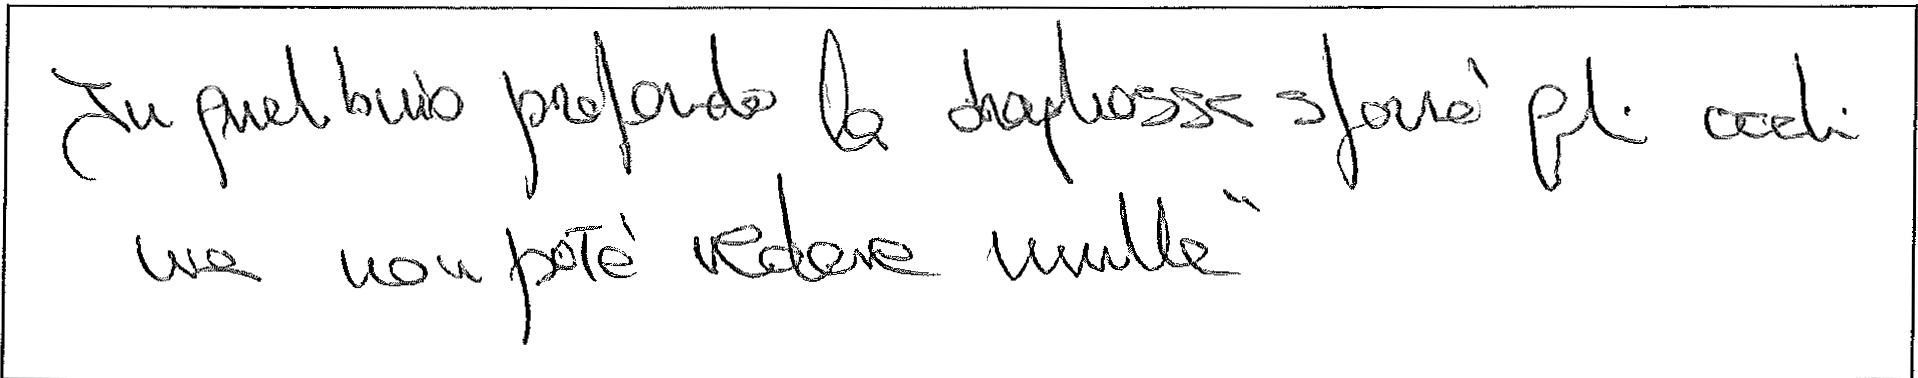 In quel buio profondo la sforzò gli occhi
ma non poté vedere nulla"